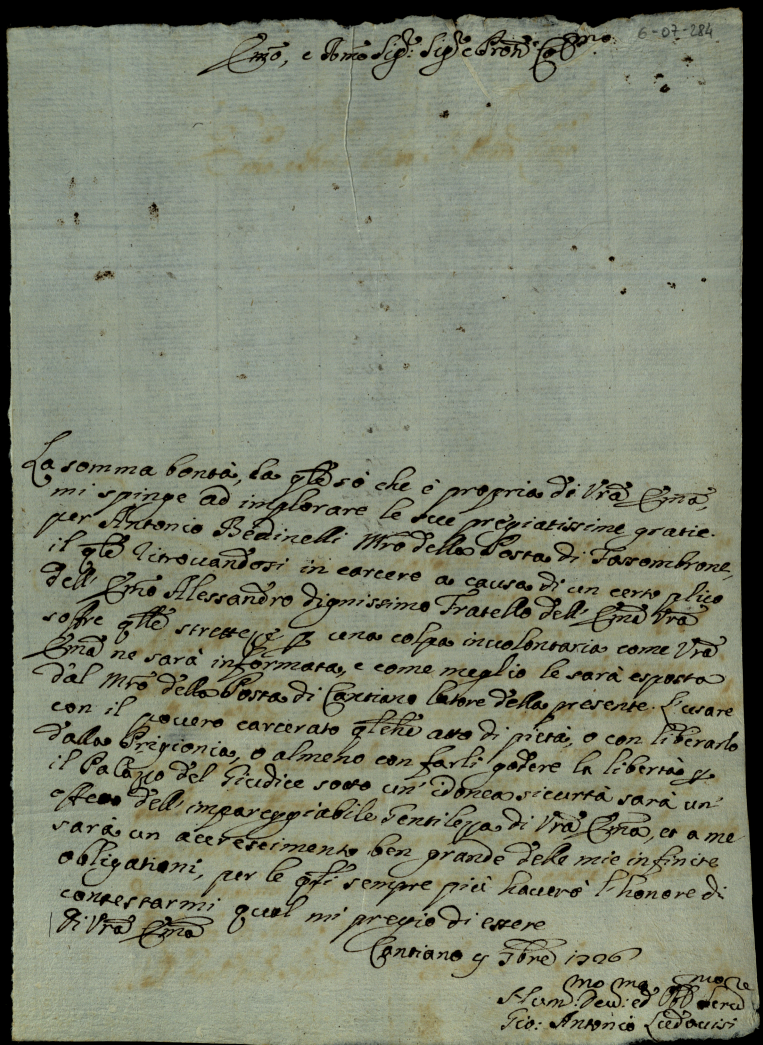 6-07-284
Emo, e Rmo Sig:r Sig:r e Pron Col:mo
La somma bontà, la qle sò che è propria di Vra Ema,
mi spinge ad implorare le sue pregiatissime gratie
per Antonio Bedinelli Mro della Posta di Fossombrone,
il qle ritrovandosi in carcere a causa di un certo plico
dell' Emo Alessandro dignissimo Fratello dell' Ema Vra
soffre qlle strettezze p una colpa involontaria come Vra
Ema ne sarà informata, e come meglio le sarà esposta
dal Mro della Posta di Cantiano latore della presente. L'usare
con il povero carcerato qlche atto di pietà, o con liberarlo
dalla Prigionia, o almeno con farli godere la libertà p
il Palazzo del Giudice sotto un' idonea sicurtà sarà un'
effetto dell' impareggiabile Gentilezza di Vra Ema, et a me
sarà un accrescimento ben grande delle mie infinite
obligationi, per le qli sempre più haverò l'honore di
contestarmi qual mi pregio di essere
Di Vra Ema
Cantiano 9bre 1726
Hum:mo Dev:mo ed Obb:mo Serv:re
Gio: Antonio Ludovisi